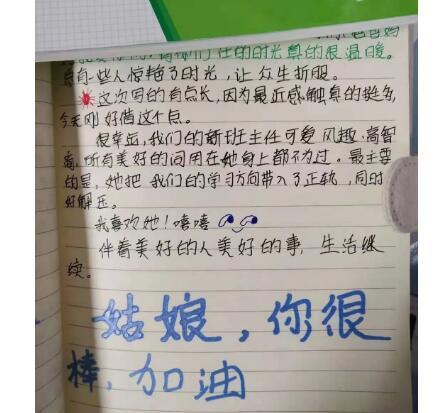 你们在的时光真的很温暖。
总有一些人惊艳了时光，让众生折服。
这次写的有点长，因为最近感触真的挺多，
今天刚好借这个点。
很幸运，我们的新班主任可爱 风趣、高智
商，所有美好的词用在她身上都不为过。最主要
的是，她把 我们的学习方向带入了正轨，同时
好解压。
我喜欢她！嘻嘻
伴着美好的人美好的事，生活继
续。
姑娘，你很
棒，加油